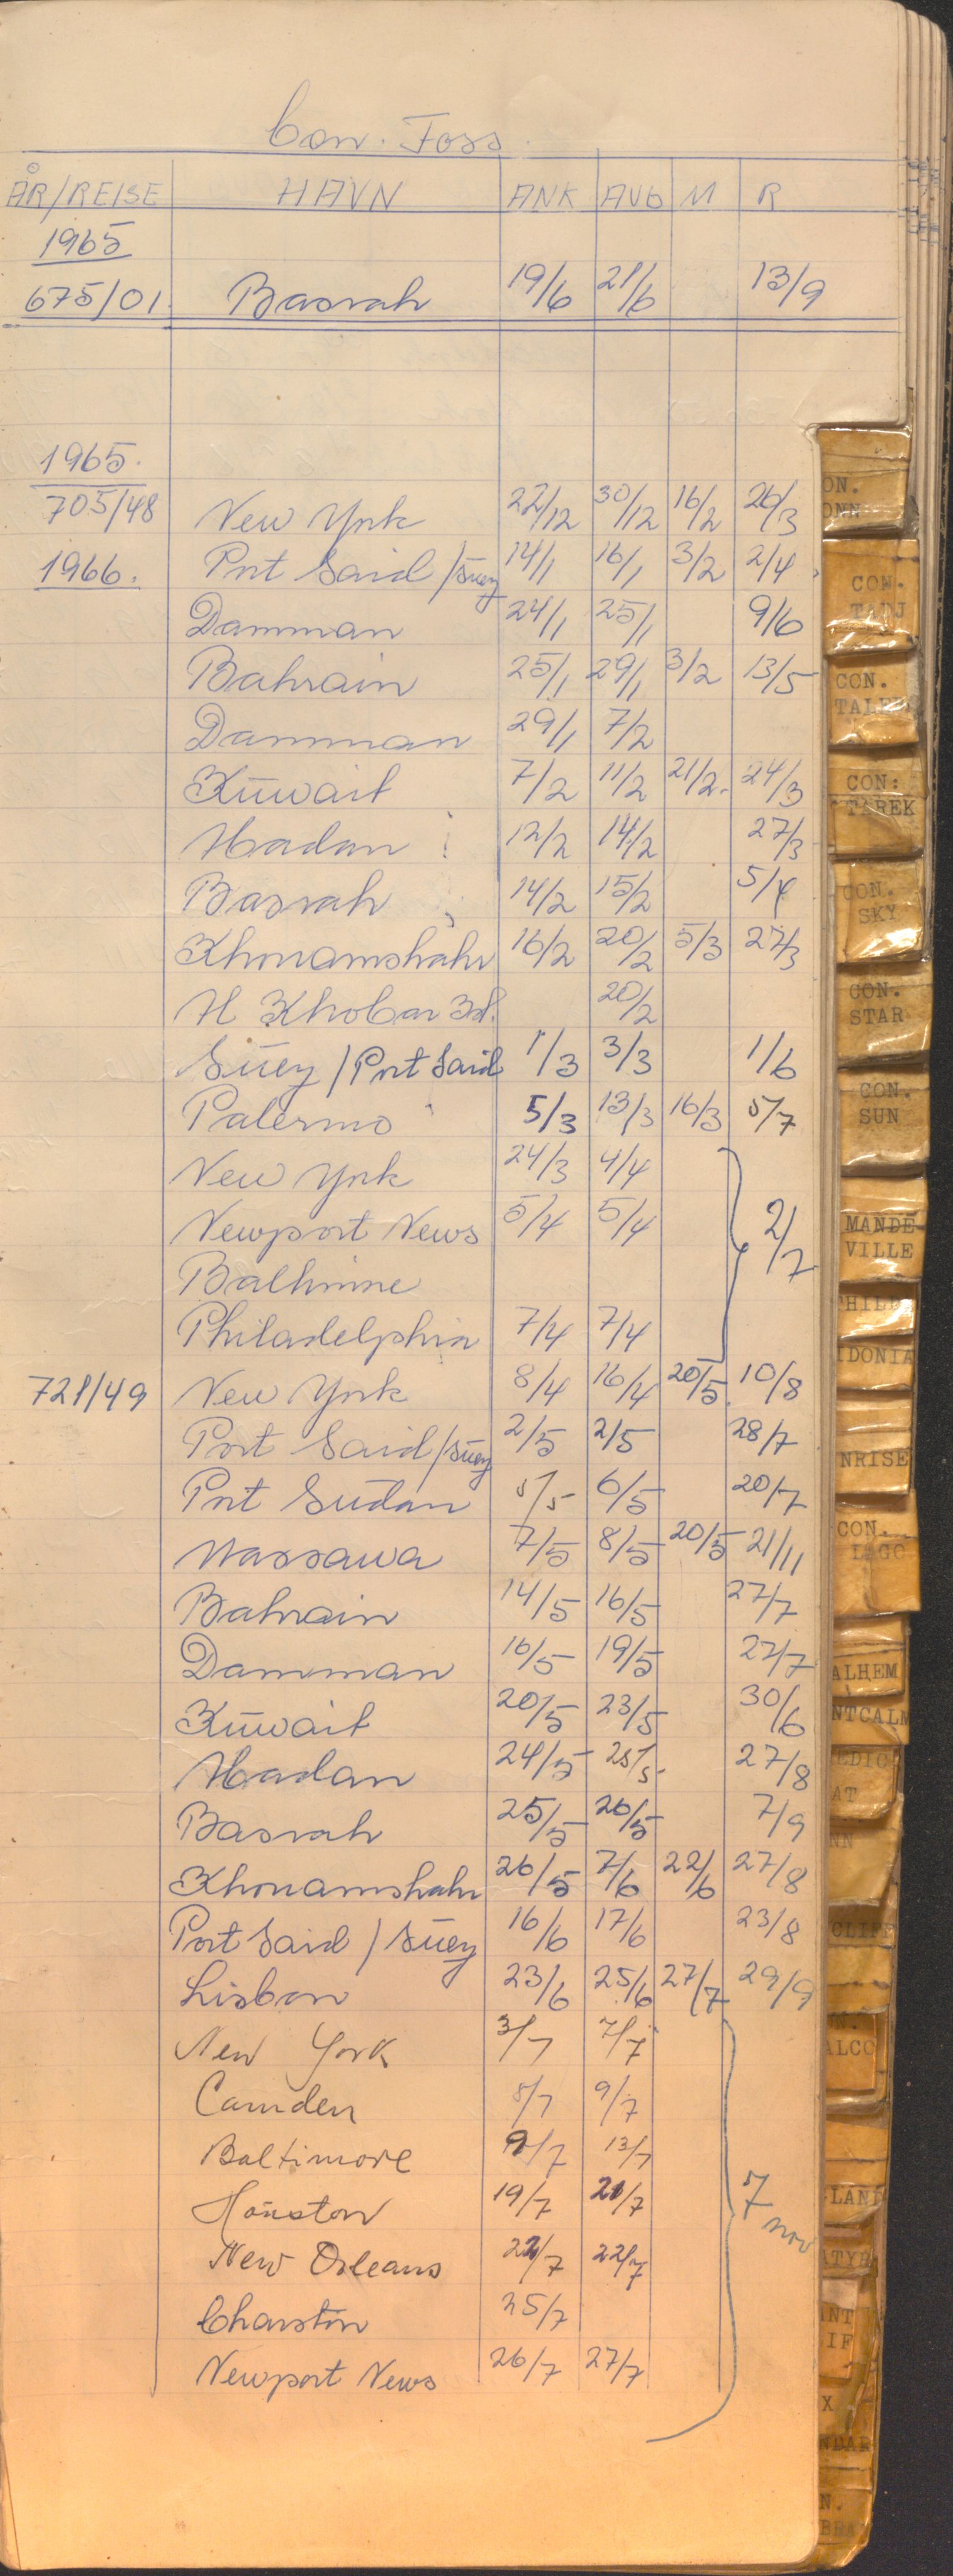 Con. Foss.
ÅR/REISE HAVN ANK AVG M R
1965
675/01 Basrah 19/6 21/6 13/9
1965.
705/48 New York 22/12 30/12 16/2 26/3
1966. Port Said/Suez 14/1 16/1 3/2 2/4
Damman 24/1 25/1 9/6
Bahrain 25/1 29/1 3/2 13/5
Damman 29/1 7/2
Kuwait 7/2 11/2 21/2. 24/3
Abadan 12/2 14/2 27/3
Basrah 14/2 15/2 5/4
Khoramshahr 16/2 20/2 5/3 27/3
Al Khobar 20/2
Suez/Port Said 1/3 3/3 1/6
Palermo 5/3 13/3 16/3 5/7
New York 24/3 4/4
Newport News 5/4 5/4 2/7
Baltimore
Philadelphia 7/4 7/4
721/49 New York 8/4 16/4 20/5 10/8
Port Said/Suez 2/5 2/5 28/7
Port Sudan 5/5 6/5 20/7
Massawa 7/5 8/5 20/5 21/11
Bahrain 14/5 16/5 27/7
Damman 16/5 19/5 27/7
Kuwait 20/5 23/5 30/6
Abadan 24/5 25/5 27/8
Basrah 25/5 26/5 7/9
Khoramshahr 26/5 7/6 22/6 27/8
Port Said/Suez 16/6 17/6 23/8
Lisbon 23/6 25/6 27/7 29/9
New York 3/7 7/7
Camden 8/7 9/7
Baltimore 9/7 13/7
Houston 19/7 21/7 7 nov
New Orleans 22/7 22/7
Charston 25/7
Newport News 26/7 27/7
ON.
ONN
CON.
TADJ
CON.
TALE
CON:
TAREK
CON.
SKY
CON.
STAR
CON.
SUN
MANDE
VILLE
PHIL
IDONIA
NRISE
CON.
LAGO
ALHEM
NTCALM
EDIC
AT
NN
CLIFF
N.
ALCO
LAN
ATY
ANT
IF
X
NDAR
N.
BRA